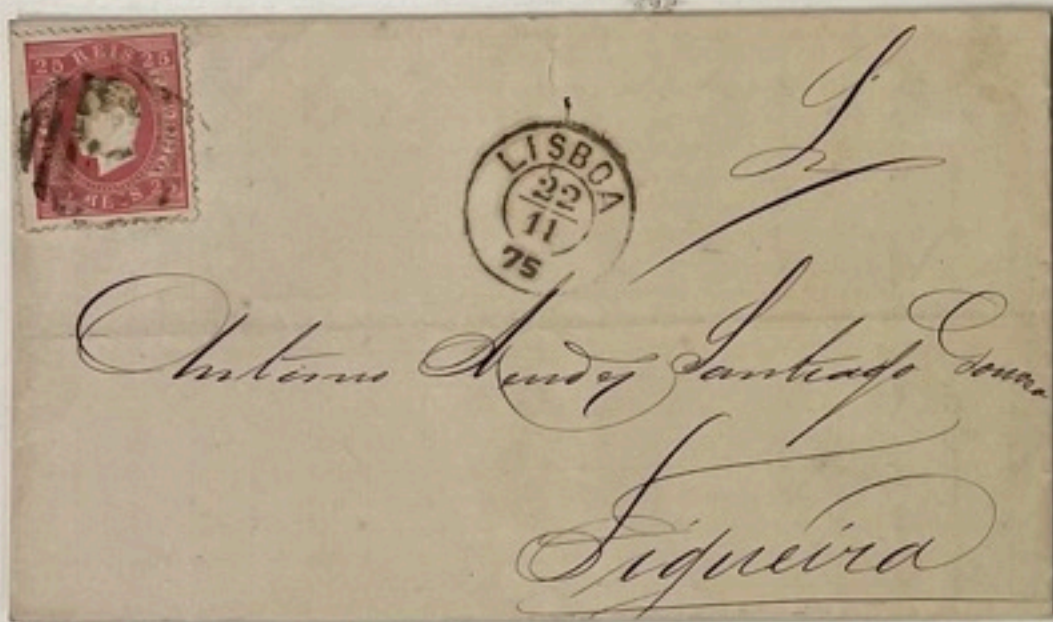 25 REIS 25
LISBOA
22
11
75
Sr
Antonio Mendes Santiago
Figueira